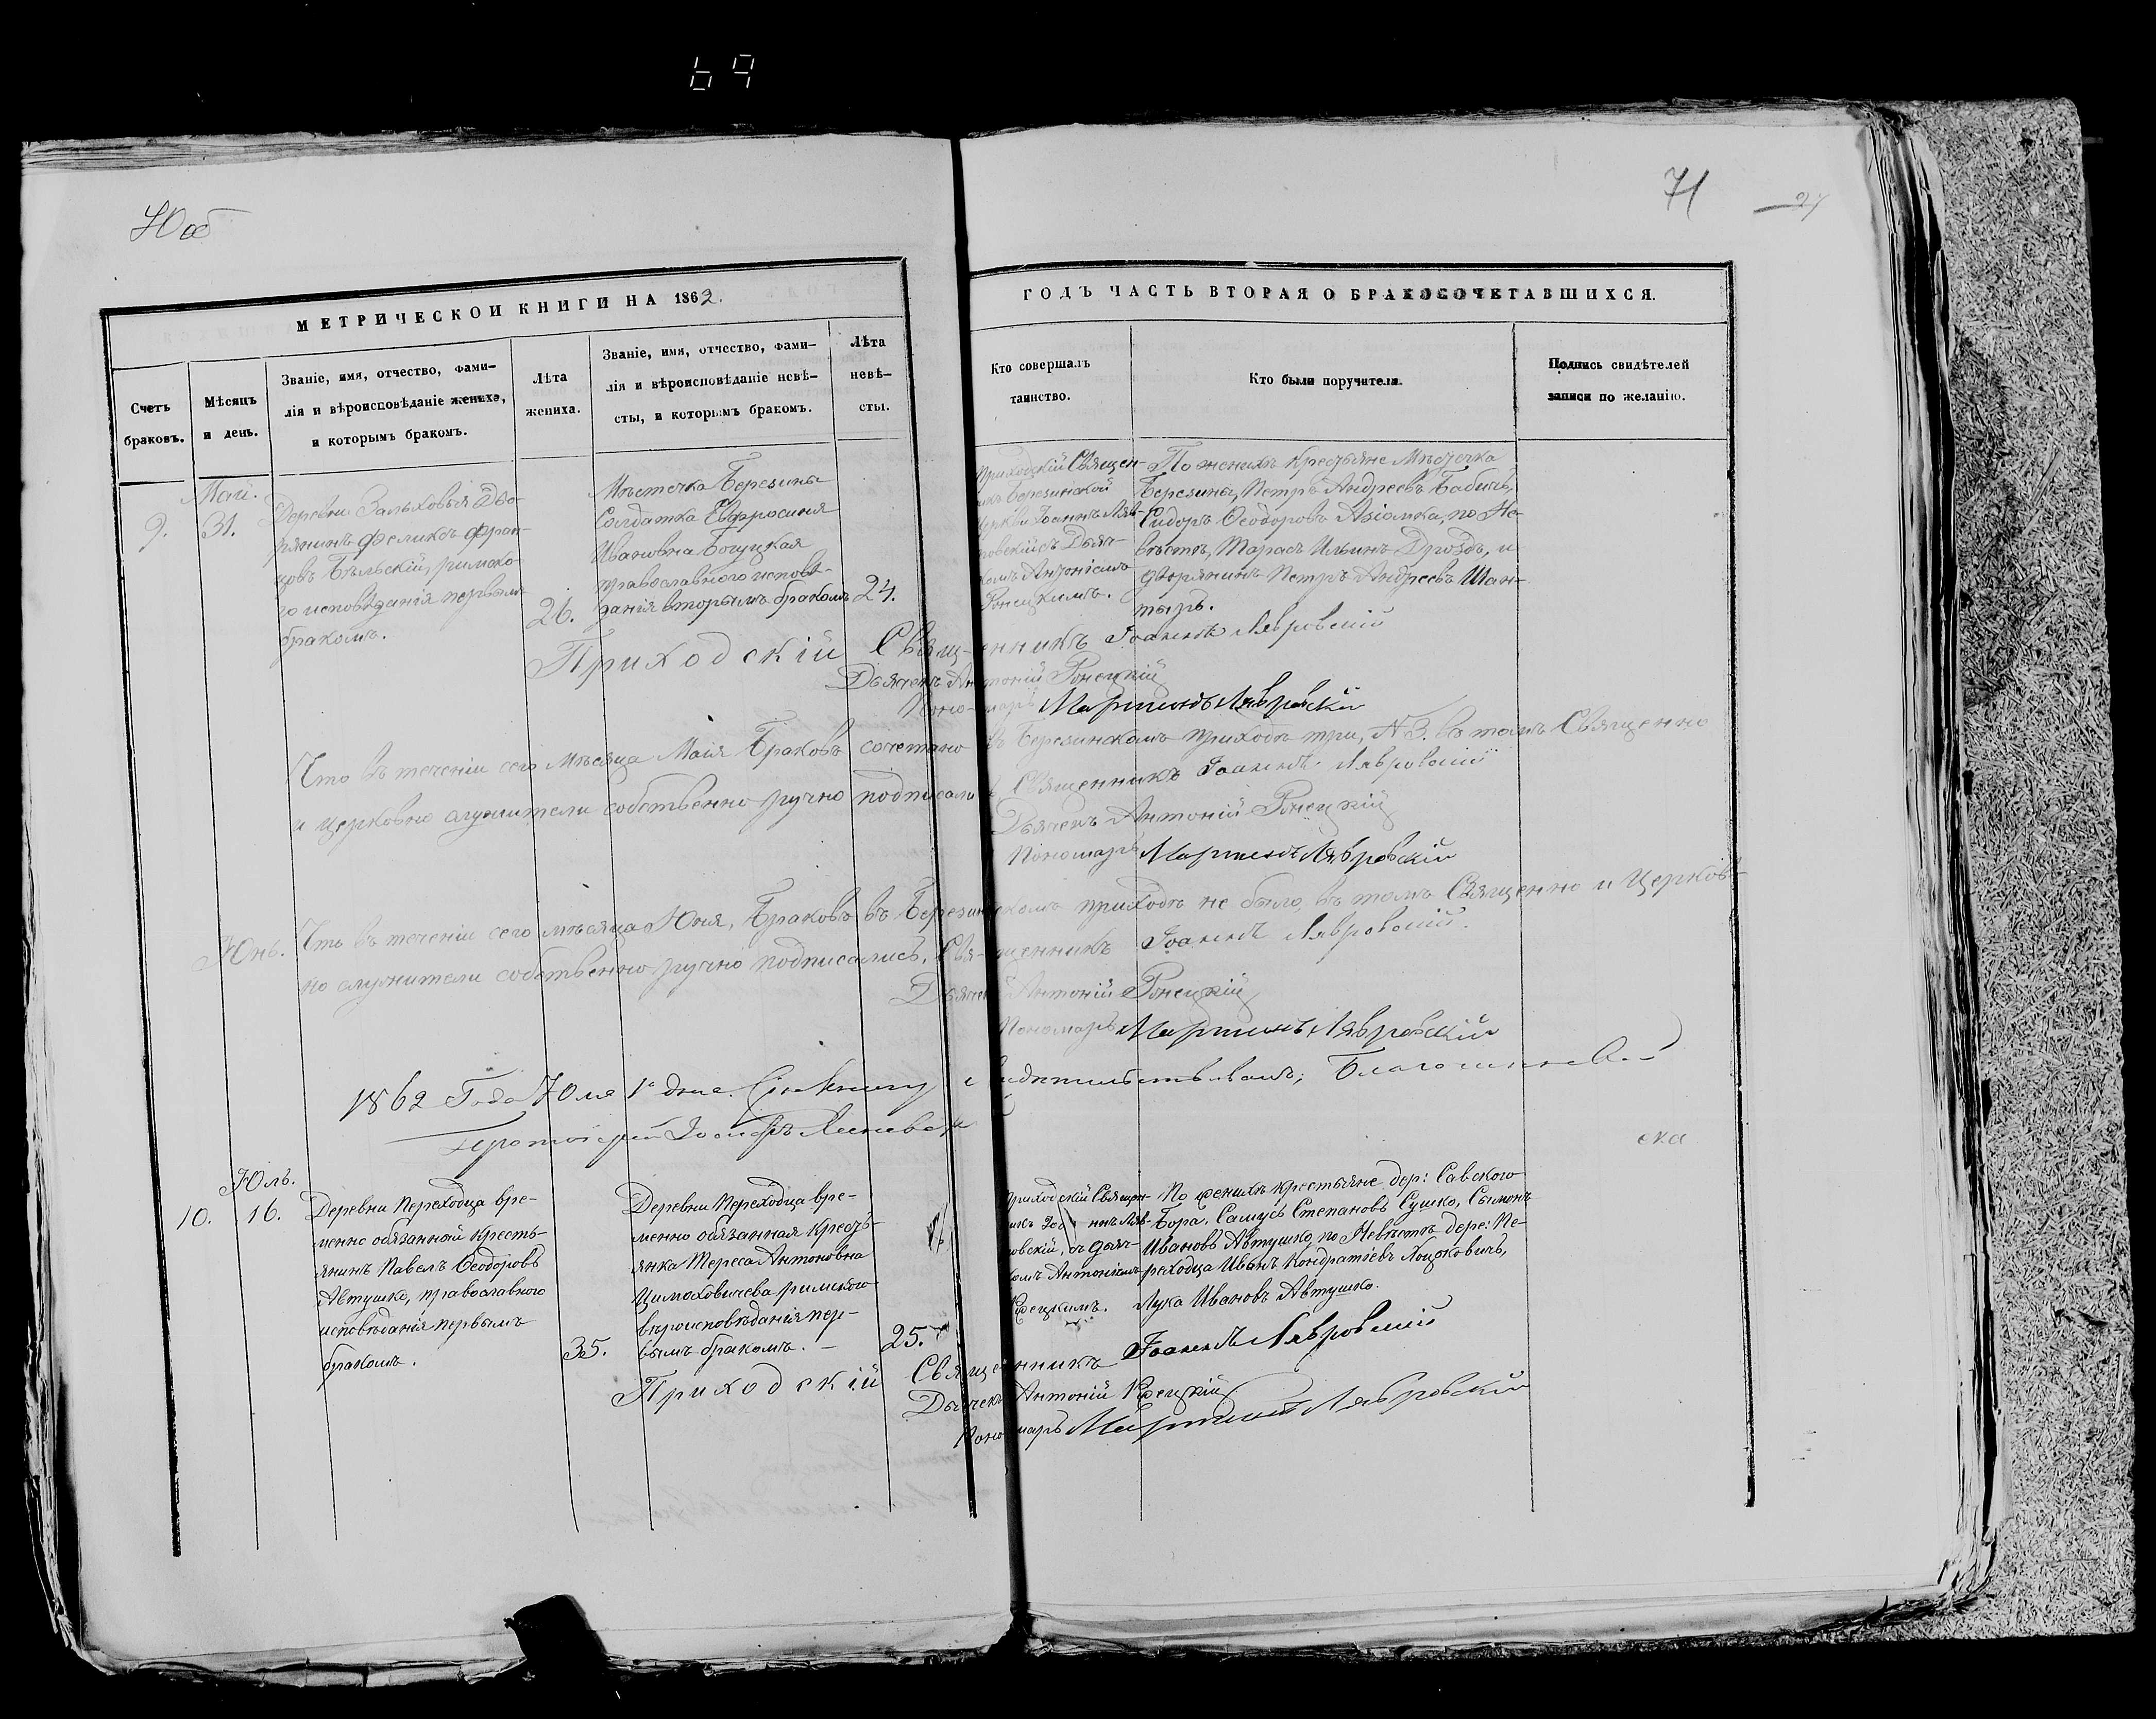 69
70 об
71
МЕТРИЧЕСКОЙ КНИГИ НА 1862.
ГОДЪ ЧАСТЬ ВТОРАЯ О БРАКОСОЧЕТАВШИХСЯ.
Счетъ
браковъ.
Мѣсяцъ
и день.
Званіе, имя, отчество, фами-
лія и вѣроисповѣданіе жениха,
и которымъ бракомъ.
Лѣта
жениха.
Званіе, имя, отчество, фами-
лія и вѣроисповѣданіе невѣ-
сты, и которымъ бракомъ.
Лѣта
невѣ-
сты.
Кто совершалъ
таинство.
Кто были поручители.
Подпись свидѣтелей
записи по желанію.
9.
Маи.
31.
Деревни Дво-
рянинъ Феликсъ Фран-
цовъ Бѣльскій, римска-
го исповѣданія первымъ
бракомъ.
26.
Мѣстечка Березины
Солдатка Евфросиния
Ивановна Богуцкая
православного исповѣ-
данія вторымъ бракомъ
24.
Приходскій Священ-
никъ Березинской
Церкви Іоаннъ Ляв-
ровскій съ Дьяч-
комъ Антоніемъ
По женихѣ Крестьяне Мѣстечка
Березины, Петръ Андреевъ Бабичъ,
Сидоръ Ѳеодоровъ Азіомка, по Не-
вѣстѣ, Тарасъ Ильинъ Дроздъ, и
дворянинъ Петръ Андреевъ Шан-
тыръ.
Приходскій Священникъ Іоаннъ Лявровскій
Дьячекъ Антоній
Пономарь Мартинъ Лявровскій
Что въ теченіи сего Мѣсяца Маія Браковъ сочетано въ Березинскомъ приходѣ три, N 3. въ томъ Священно
и церковно служители собственно ручно подписались Священникъ Іоаннъ Лявровскій
Дьячекъ Антоній
Пономарь Мартинъ Лявровскій
Юнь. Что въ теченіи сего мѣсяца Юня, Браковъ въ Березинскомъ приходѣ не было, въ томъ Священно и Церков-
но служители собственно ручно подписались, Священникъ Іоаннъ Лявровскій.
Дьячекъ Антоній
Пономарь Мартинъ Лявровскій
1862 Года Юля 1 дня. Сію Книгу свидѣтельствовалъ; Благочинный
Протоіерей
10.
Юль.
16.
Деревни Переходца вре-
менно обязанной кресть-
янинъ Павелъ Ѳеодоровъ
Автушко, православного
исповѣданія первымъ
бракомъ.
35.
Деревни Переходца вре-
менно обязанная крестъ-
янка Тереса Антоновна
Цимоховичева римского
вѣроисповѣданія пер-
вымъ бракомъ. –
25.
Приходскій Священ-
никъ Іоаннъ Ляв-
ровскій, съ дьяч-
комъ Антоніемъ
По женихѣ крестьяне дер: Савского
Бора, Самусь Степановъ Сушко, Сымонъ
Ивановъ Автушко, по Невѣстѣ дере: Пе-
реходца Иванъ Кондратіевъ Лоцковичъ,
Лука Ивановъ Автушко.
Приходскій Священникъ Іоаннъ Лявровскій
Дьячекъ Антоній
Пономарь Мартинъ Лявровскій